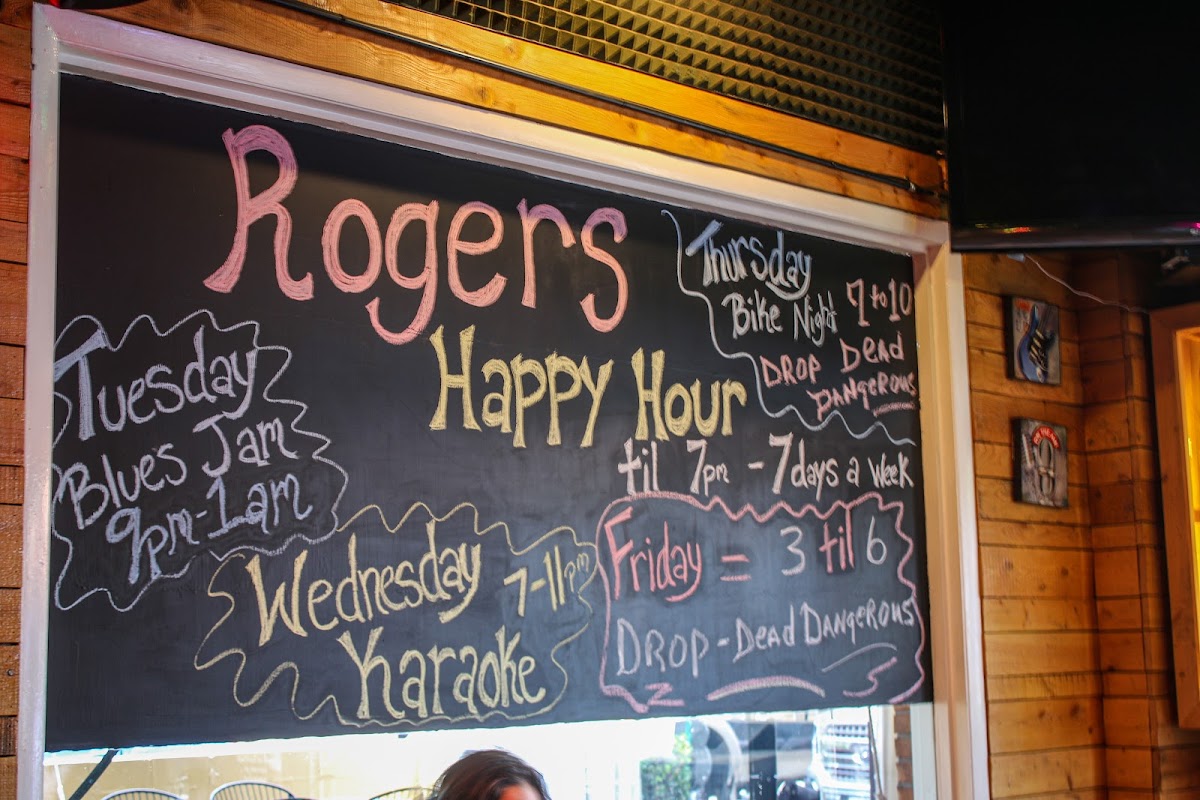 Rogers
Happy Hour
til 7pm - 7 days a week
Tuesday
Blues Jam
9pm-1am
Wednesday 7-11pm
Karaoke
Thursday
Bike Night 7 to 10
DROP DEAD
DANGEROUS
Friday = 3 til 6
DROP-DeaD DANGEROUS